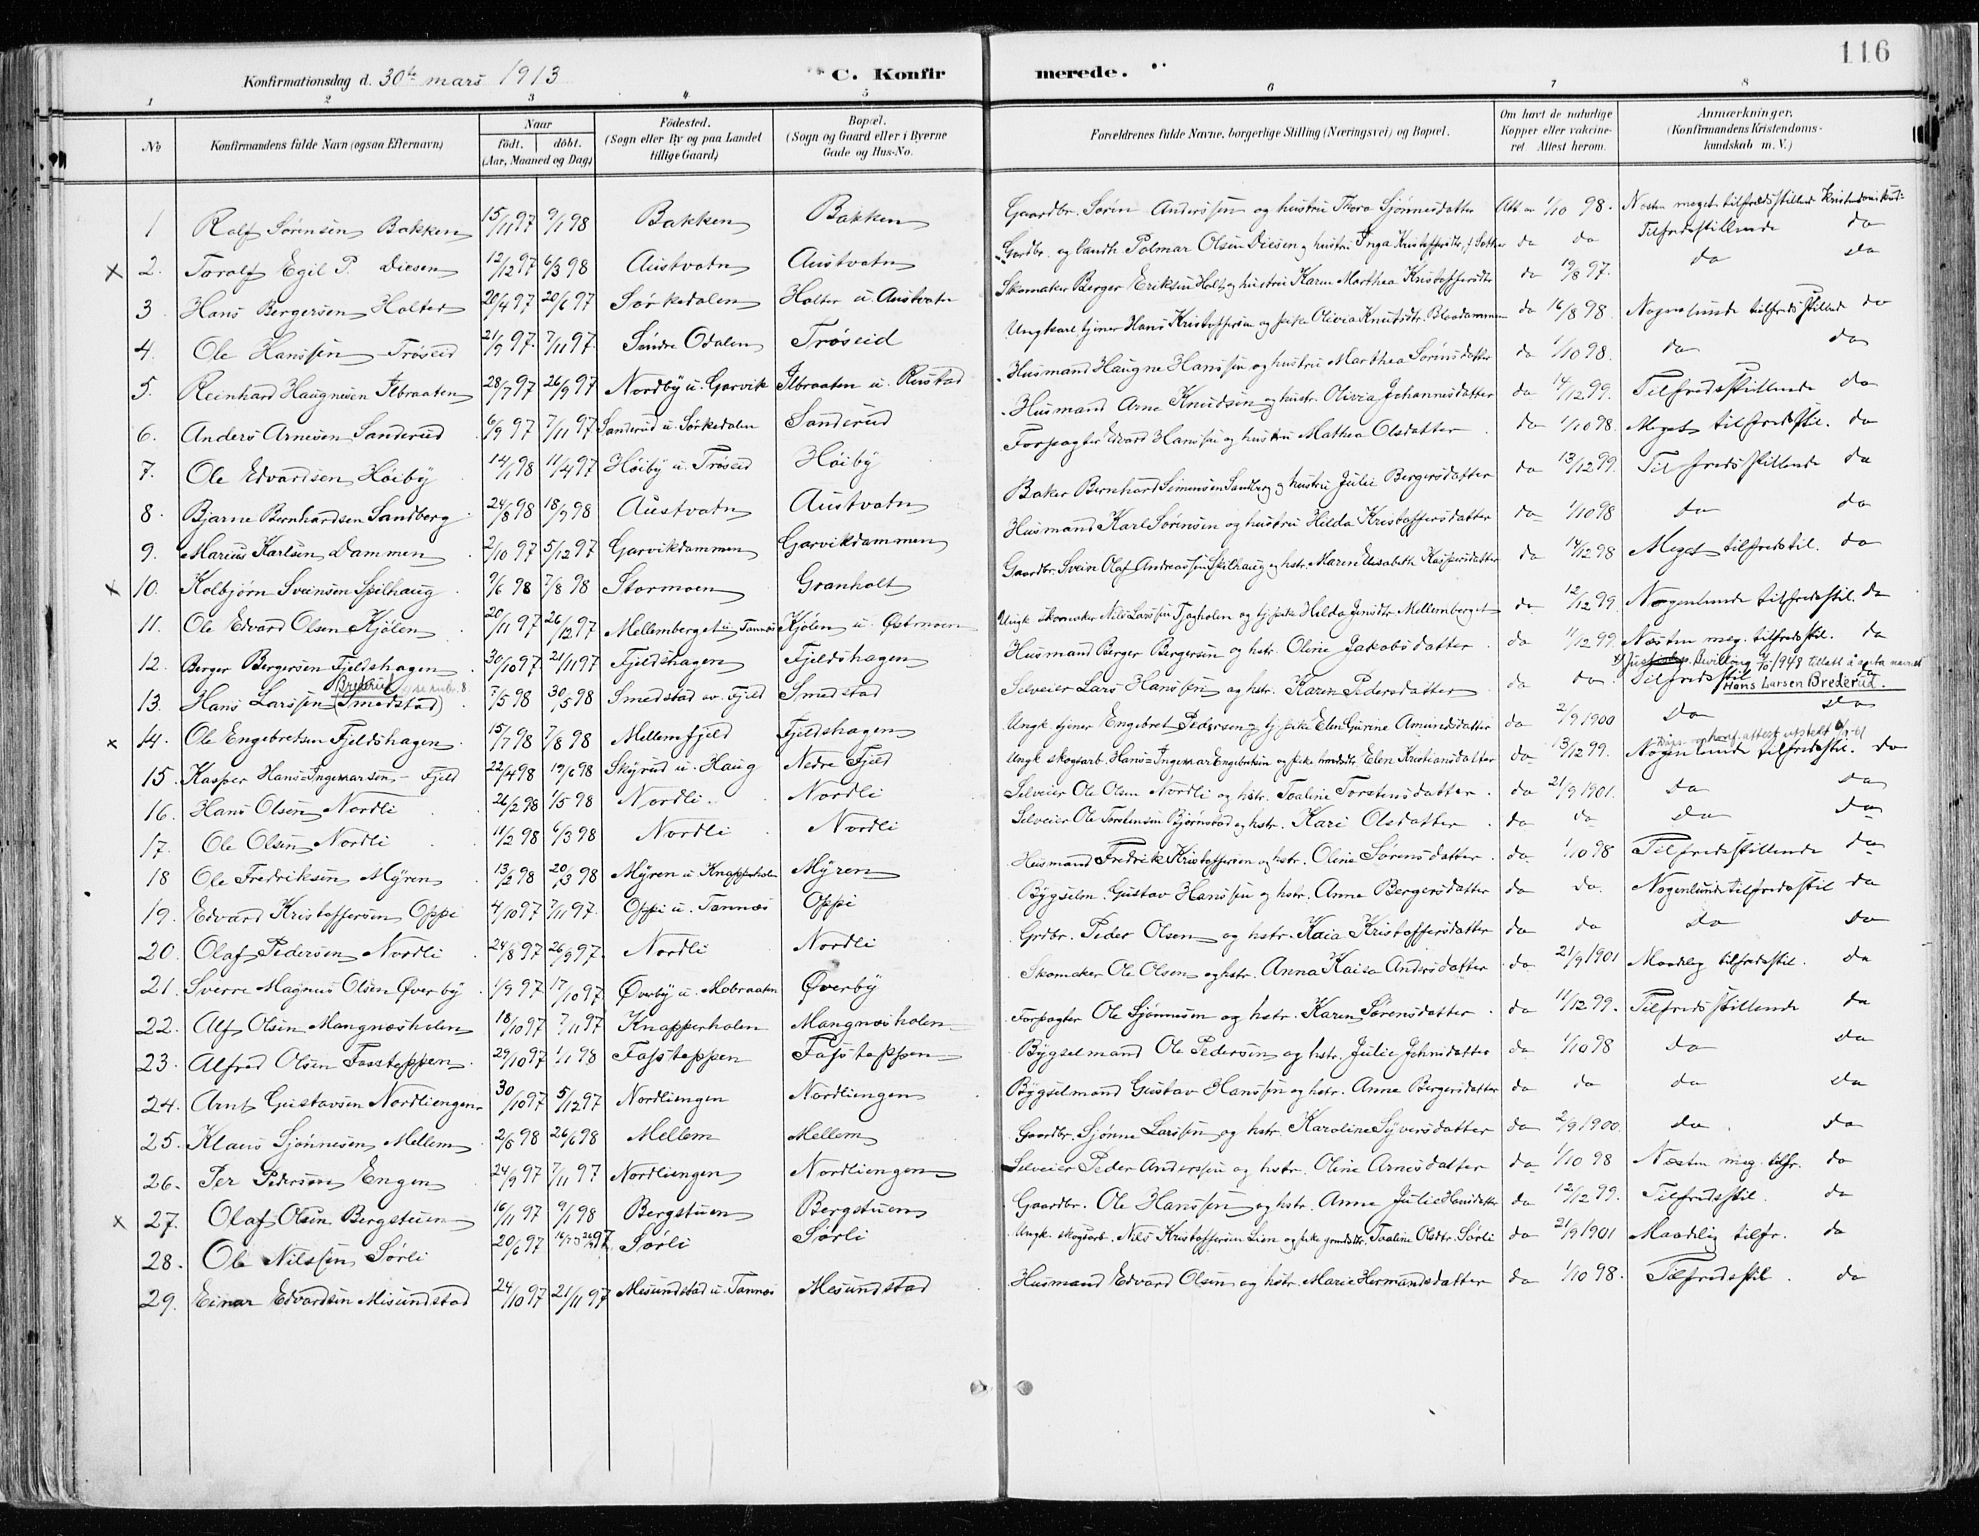 116
Konfirmationsdag d. 30te mars 1913
C. Konfirmerede.
1 2 3 4 5 6 7 8
No
Konfirmandens fulde Navn (ogsaa Efternavn)
Naar
født. døbt.
(Aar, Maaned og Dag)
Fødested.
(Sogn eller By og paa Landet
tillige Gaard)
Bopæl.
(Sogn og Gaard eller i Byerne
Gade og Hus-No.
Forældrenes fulde Navne, borgerlige Stilling (Næringsvei) og Bopæl.
Om havt de naturlige
Kopper eller vakcine-
ret Attest herom.
Anmærkninger.
(Konfirmandens Kristendoms-
kundskab m. V.)
1 Rolf Sørensen Bakken 15/11 97 9/1 98 Bakken Bakken Gaardbr. Sørin Anderssen og hustru Thora Sjønnesdatter Att. av 1/10 98. Næsten meget tilfredsstillend Kristendomskund.
x 2. Toralf Egil P. Diesen 12/12 97 6/3 98 Austvatn Austvatn Gardbr. og landh. Polmar Olsen Diesen og hustru Inga Kristoffersdtr. da da Tilfredsstillende da
3. Hans Bergersen Holter 20/4 97 20/6 97 Sørkedalen Holter u. Austvatn Skomaker Berger Eriksen Holt og hustru Karen Marthea Kristoffersdtr da 19/8 97. da da
4. Ole Hanssen Trøseid 21/9 97. 7/11 97. Søndre Odalen Trøseid Ungkarl tjener Hans Kristoffersen og pike Olivia Knutsdtr. da 16/8 98. Nogenlunde tilfredsstillend da
5. Reinhard Haugnesen Ilbraaten 28/7 97 26/9 97 Nordby u. Garvik Ilbraaten u. Rustad Husmand Haugne Hanssen og hustru Marthea Sørinsdatter da 1/10 98. da da
6. Anders Arnesen Sanderud 6/9 97 7/11 97 Sanderud u. Sørkedalen Sanderud Husmand Arne Knudsen og hustr. Olivia Johannesdatter da 14/12 99. Tilfredsstillende da
7. Ole Edvardsen Høiby 14/1 98 11/4 97 Høiby u. Trøseid Høiby Forpagter Edvard Hanssen og hustru Mathea Olsdatter da 1/10 98. Meget tilfredsstil. da
8. Bjarne Bernhardsen Sandberg 24/8 98 18/9 98 Austvatn Austvatn Baker Bernhard Simensen Sandberg og hustru Julie Bergersdatter da 13/12 99. Tilfredsstillende da
9. Marius Karlsen Dammen 2/10 97 5/12 97 Garvikdammen Garvikdammen Husmand Karl Sørensen og hustru Hilda Kristoffersdatter da 1/10 98 da da
x 10. Kolbjørn Sveinsen Spilhaug 9/6 98 7/8 98 Stormoen Granholt Gaardbr. Svein Olaf Andreassen Spilhaug og hstr. Maren Elisabeth Kaspersdatter da 14/12 98 Meget tilfredsstil. da
11. Ole Edvard Olsen Kjølen 20/11 97 26/12 97 Mellemberget u. Tannæs Kjølen u. Østmoen Ungk. skomaker Nils Larssen Tjagholen og tj. pike Helda Jensdtr. Mellemberget da 12/12 99. Nogenlunde tilfredsstil. da
12. Berger Bergersen Fjeldshagen 30/10 97 21/11 97 Fjeldshagen Fjeldshagen Husmand Berger Bergersen og hustru Oline Jakobsdatter da 11/12 99. Næsten meg. tilfredsstil. da
Brederud Bevilling 1948 tillatt å anta navnet
13. Hans Larssen (Smedstad) 7/5 98 30/5 98 Smedstad av Fjeld Smedstad Selveier Lars Hanssen og hstr. Karen Pedersdatter da da. Tilfredsstil. da
Hans Larsen Brederud.
x 14. Ole Engebretsen Fjeldshagen 15/7 98 7/8 98 Mellemfjeld Fjeldshagen Ungk. tjener Engebret Pedersen og tj. pike Elen Gurine Amundsdatter da 2/9 1900 da da
attest utstett
15. Kasper Hans Ingemarsen Fjeld 22/4 98 19/6 98 Skyrud u. Haug Nedre Fjeld Ungk skogsarb. Hans Ingemar Engebretsen og pike Elen Kristiansdatter da 13/12 99. Nogenlunde tilfredsstil. da
16. Hans Olsen Nordli 26/2 98 1/5 98 Nordli Nordli Selveier Ole Olsen Nordli og hstr. Taaline Torstensdatter da 21/9 1901. da da
17. Ole Olsen Nordli 11/2 98 6/3 98 Nordli Nordli Selveier Ole Torstensen Bjørnstad og hstr. Kari Olsdatter da da da da
18 Ole Fredriksen Myren 13/2 98 20/3 98 Myren u Knapperholen Myren Husmand Fredrik Kristoffersen og hstr. Oline Sørensdatter da 1/10 98 Tilfredsstillende da
19. Edvard Kristoffersen Oppi 4/10 97 7/11 97. Oppi u. Tannæs Oppi Bygselm. Gustav Hanssen og hstr. Anne Bergersdatter da da. Nogenlunde tilfredsstil da
20. Olaf Pedersen Nordli 24/8 97 26/9 97. Nordli Nordli Grdbr. Peder Olsen og hstr. Kaia Kristoffersdatter da da da da
21. Sverre Magnus Olsen Øverby 1/9 97 17/10 97 Øverby u. Mobraaten Øverby Skomaker Ole Olsen og hstr. Anna Kaisa Andersdatter da 21/9 1901 Maadelig tilfredsstil. da
22. Alf Olsen Mangnæsholen 18/10 97 7/11 97 Knapperholen Mangnæsholen Forpagter Ole Sjønnesen og hstr. Karen Sørensdatter da 11/12 99. Tilfredsstillende da
23. Alfred Olsen Fassteppen 29/10 97 1/1 98 Fassteppen Fassteppen Bygselmand Ole Pedersen og hstr. Julie Johnsdatter da 1/10 98 da da
24. Arnt Gustavsen Nordliengen 30/10 97 5/12 97 Nordliengen Nordliengen Bygselmand Gustav Hanssen og hstr. Anne Bergersdatter da da da da
25. Klaus Sjønnesen Mellem 2/5 98 26/6 98 Mellem Mellem Gaardbr. Sjønne Larssen og hstr. Karoline Syversdatter da 2/9 1900. da da
26. Per Pedersen Engen 24/9 97 7/11 97 Nordliengen Nordliengen Selveier Peder Anderssen og hstr. Oline Arnesdatter da 1/10 98 Næsten meg. tilfr. da
x 27. Olaf Olsen Bergstuen 16/11 97 9/1 98 Bergstuen Bergstuen Gaardbr. Ole Hanssen og hstr. Anne Julie Hansdatter da 12/12 99. Tilfredsstil. da
28. Ole Nilssen Sørli 20/6 97 Sørli Sørli Ungk. skogsarb. Nils Kristoffersen Lien og pike Taaline Olsdtr. Sørli da 21/9 1901 Maadelig tilfr. da
29. Einar Edvardsen Misundstad 24/10 97 21/11 97 Mesundstad u. Tannæs Mesundstad Husmand Edvard Olsen og hstr. Marie Hermandsdatter da 1/10 98. Tilfredsstil. da